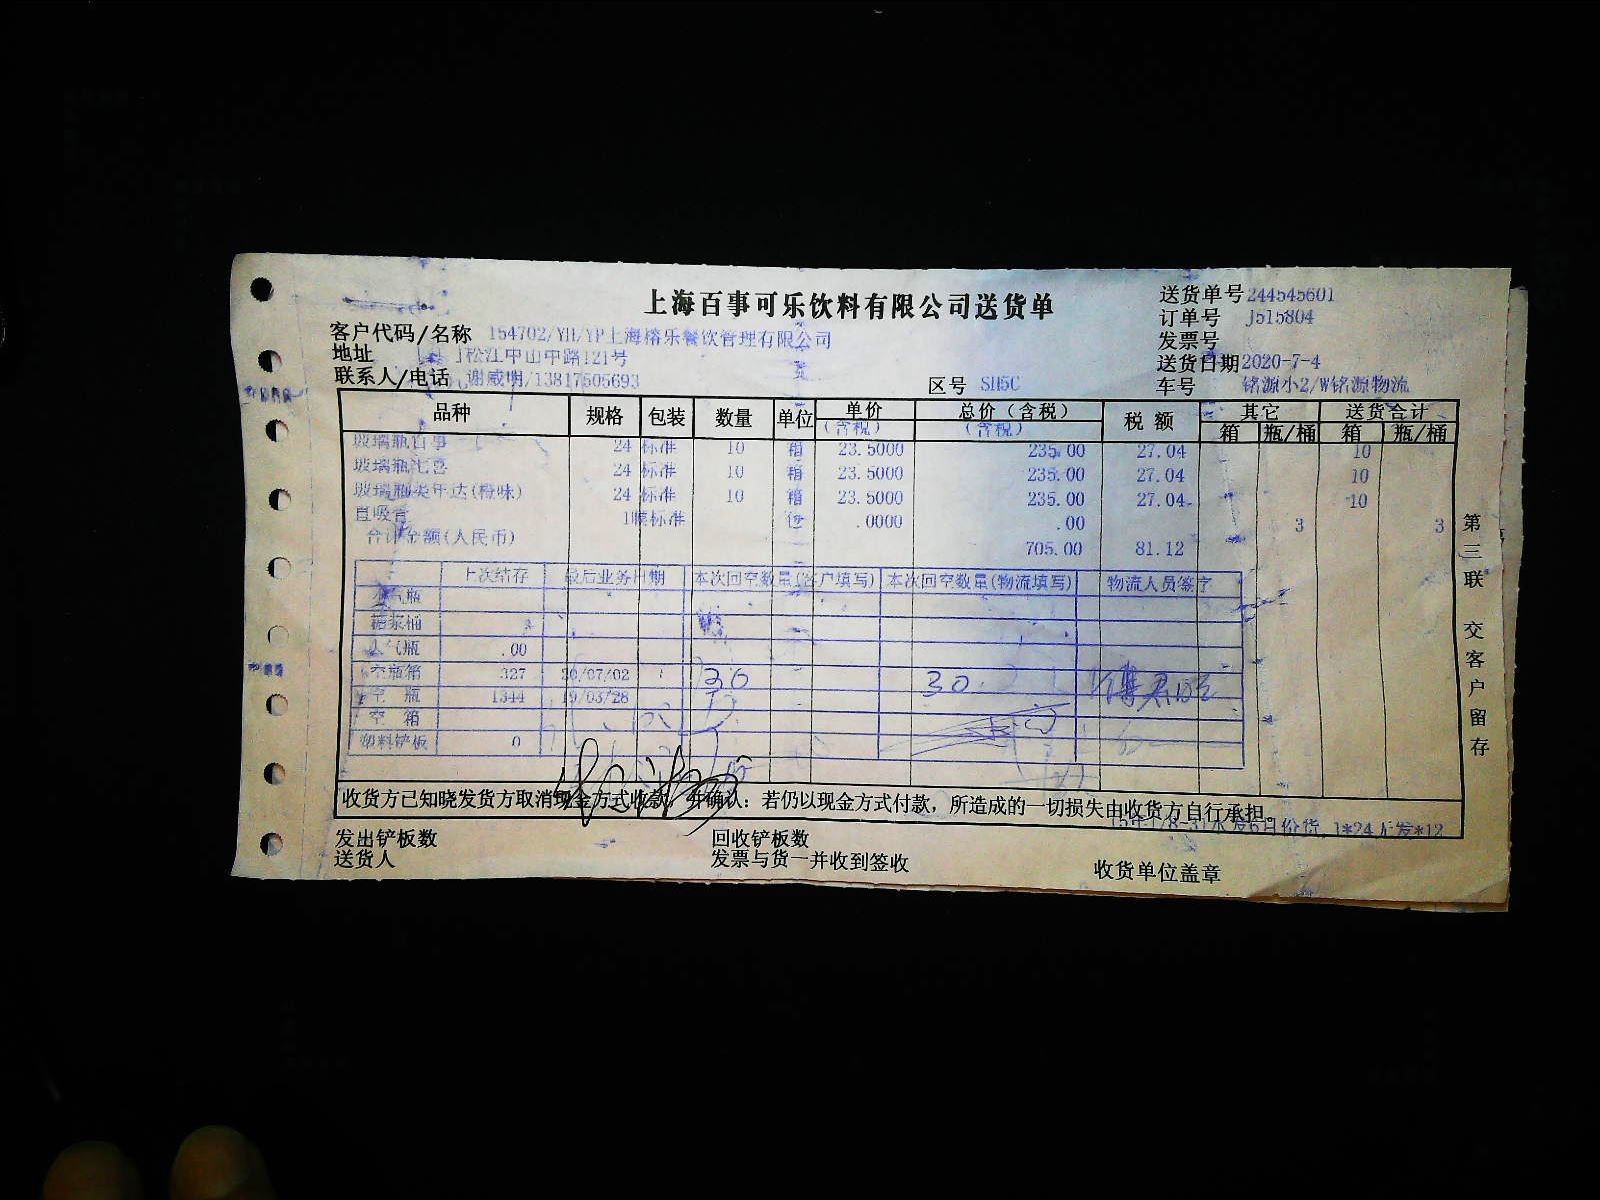 上海百事可乐饮料有限公司送货单
送货单号 244545601
订单号 J515804
发票号
送货日期 2020-7-4
车号 铭源小2/W铭源物流
客户代码/名称 154702/YH/YP上海榕乐餐饮管理有限公司
地址 松江中山中路121号
联系人/电话 谢咸明/13817505693
区号 SH5C
品种 规格 包装 数量 单位 单价 总价(含税) 税额 其它 送货合计
(含税) (含税) 箱 瓶/桶 箱 瓶/桶
玻璃瓶百事 24 标准 10 箱 23.5000 235.00 27.04 10
玻璃瓶七喜 24 标准 10 箱 23.5000 235.00 27.04 10
玻璃瓶美年达(橙味) 24 标准 10 箱 23.5000 235.00 27.04 10
直吸管 标准 .0000 .00 3 3
合计金额(人民币) 705.00 81.12
上次结存 最后业务日期 本次回空数量(客户填写) 本次回空数量(物流填写) 物流人员签字
气瓶
糖浆桶
气瓶 .00
空瓶箱 327 20/07/02 30 30
空瓶 1344 19/03/28
空箱
塑料铲板 0
收货方已知晓发货方取消现金方式收款,并确认:若仍以现金方式付款,所造成的一切损失由收货方自行承担。
发6月份货, 1*24
发出铲板数 回收铲板数
送货人 发票与货一并收到签收 收货单位盖章
第三联 交客户留存